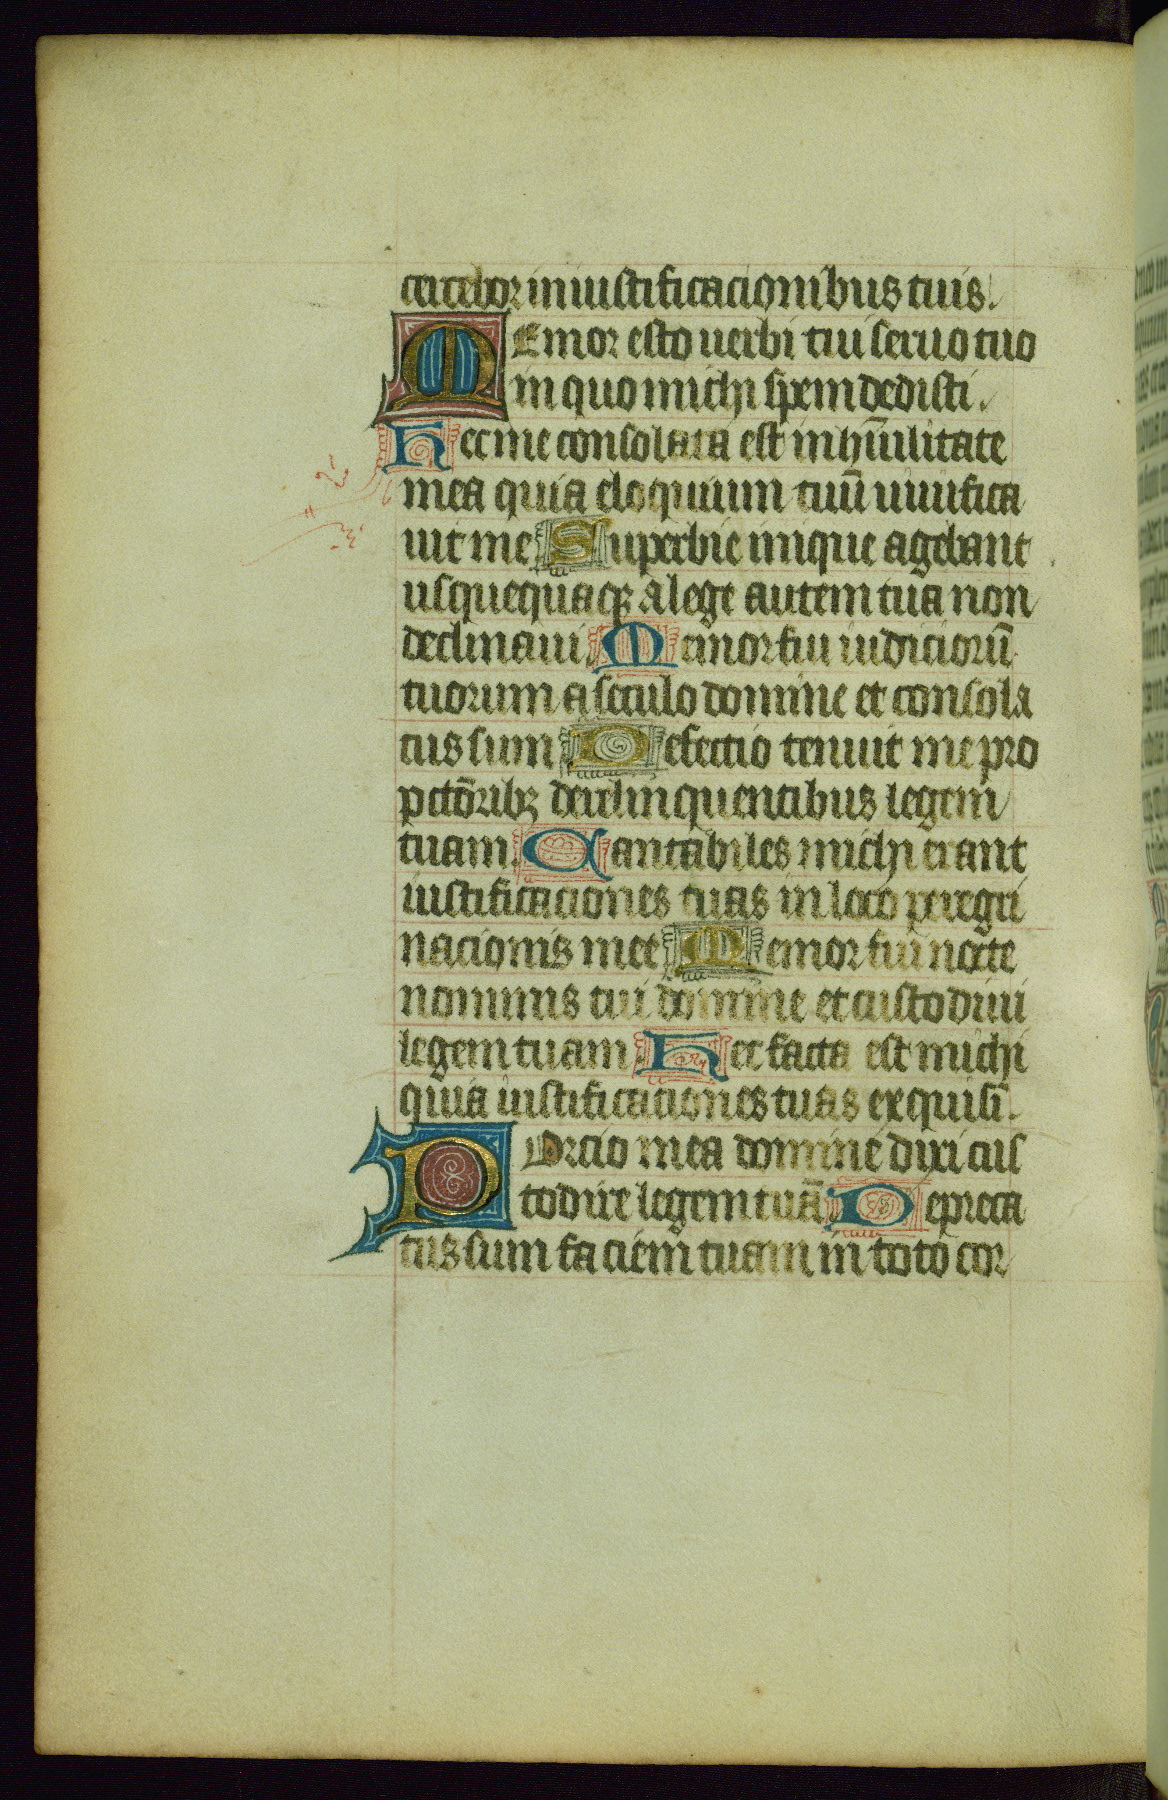 cercebor in iustificacionibus tuis.
Memor esto uerbi tui seruo tuo
in quo michi spem dedisti.
Hec me consolata est in hūilitate
mea quia eloquium tuū uiuifica
uit me Superbie inique agebant
usquequaqꝫ a lege autem tua non
declinaui Memor fui iudiciorū
tuorum a seculo domine et consola
tus sum Defectio tenuit me pro
pctōribꝫ derelinquentibus legem
tuam Cantabiles michi erant
iustificaciones tuas in loco peregri
nacionis mee Memor fui nocte
nominis tui domine et custodiui
legem tuam Hec facta est michi
quia iustificationes tuas exquisī.
Porcio mea domine dixi cus
todire legem tuā Depreca
tus sum faciem tuam in toto cor